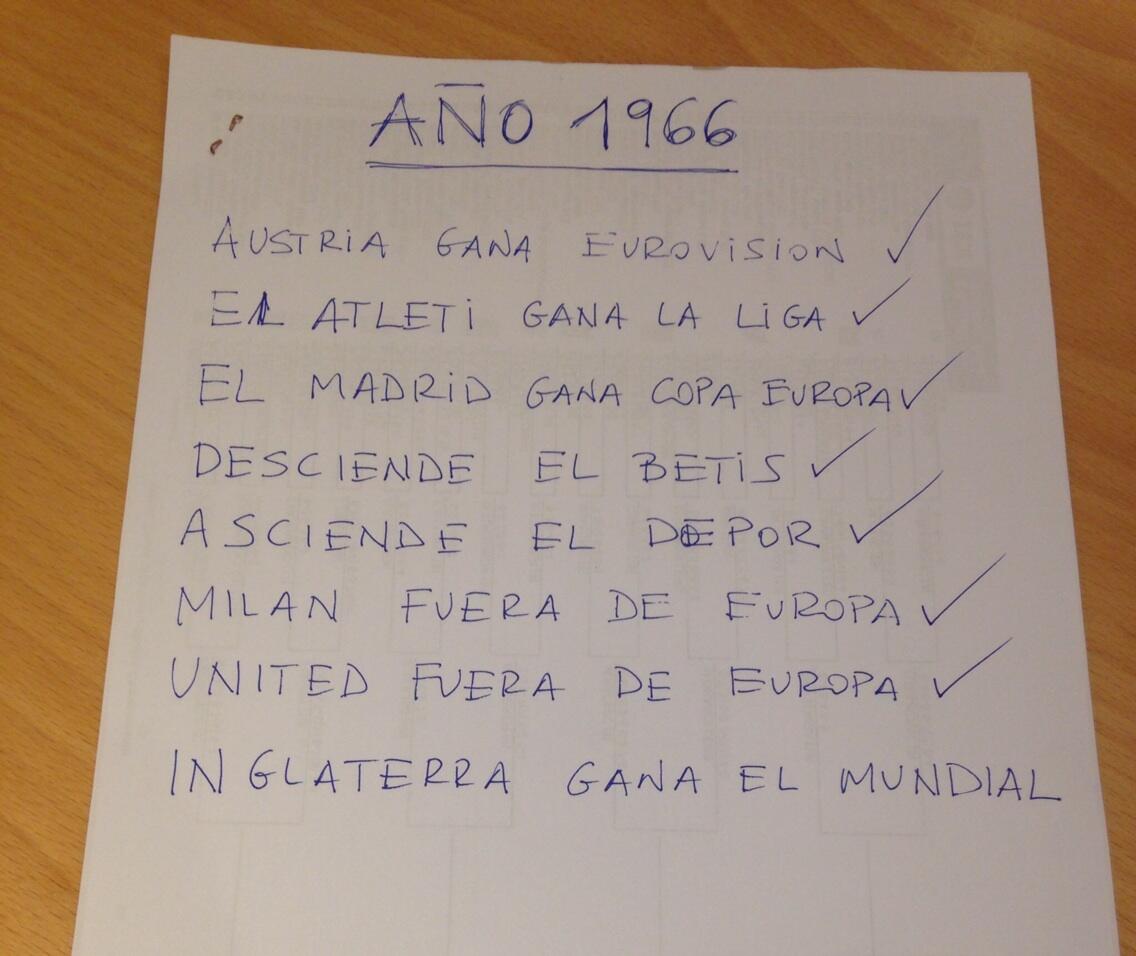 AÑO 1966
AUSTRIA GANA EUROVISION ✓
EL ATLETI GANA LA LIGA ✓
EL MADRID GANA COPA EUROPA ✓
DESCIENDE EL BETIS ✓
ASCIENDE EL DEPOR ✓
MILAN FUERA DE EUROPA ✓
UNITED FUERA DE EUROPA ✓
INGLATERRA GANA EL MUNDIAL